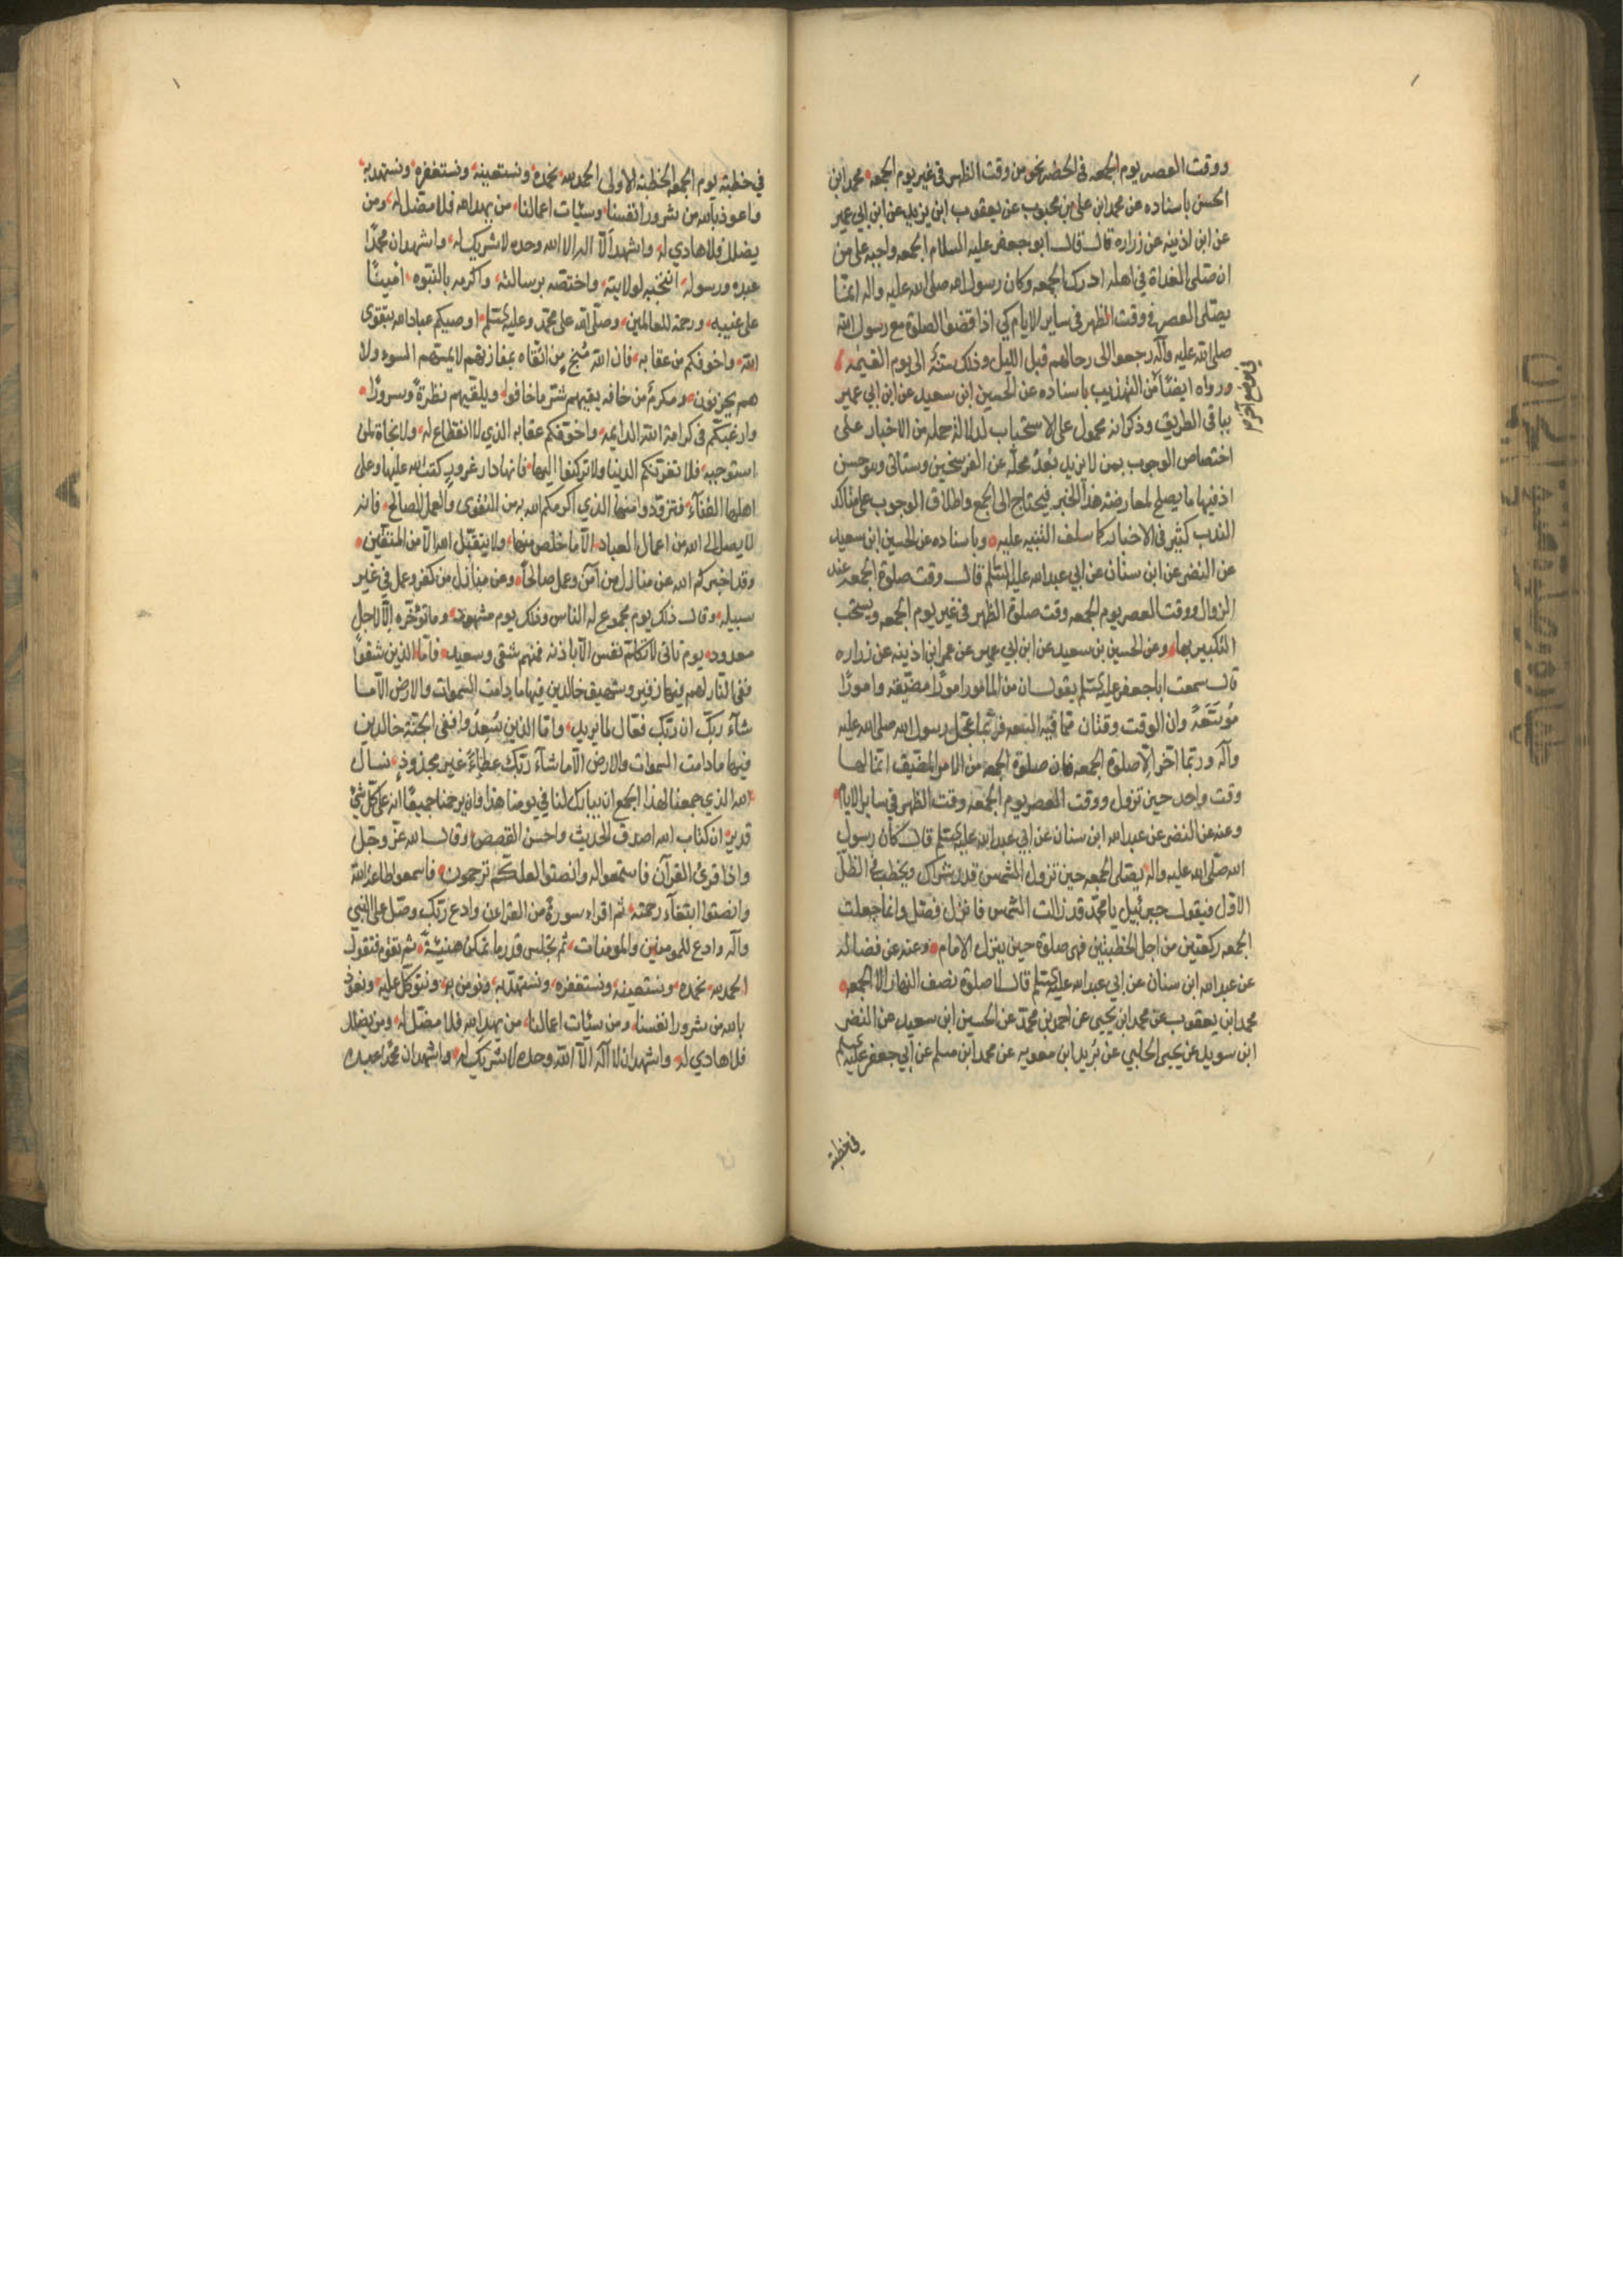 ووقت العصر يوم الجمعه في الحضر نحو من وقت الظهر في غير يوم الجمعه محمد ابن
الحسن باسناده عن محمد ابن علي بن محبوب عن يعقوب ابن يزيد عن ابن ابي عمير
عن ابن اذينه عن زراره قال قال ابو جعفر عليه السلام الجمعه واجبه على من
ان صلى الغداة في اهله ادرك الجمعه وكان رسول الله صلى الله عليه واله انما
يصلى العصر في وقت الظهر في ساير الايام كي اذا قضوا الصلوة مع رسول الله
صلى الله عليه وآله رجعوا الى رحالهم قبل الليل وذلك سنة الى يوم القيمة
ورواه ايضًا من التهذيب باسناده عن الحسين ابن سعيد عن ابن ابي عمير
في موضع آخر
بباقي الطريق وذكر انه محمول على الاستحباب لدلالة جمله من الاخبار على
اختصاص الوجوب بمن لا يزيد بعد محله عن الفرسخين وستاتى وهو حسن
اذ فيها ما يصلح لمعارضة هذا الخبر فيحتاج الى الجمع واطلاق الوجوب على متاكد
الندب كثير في الاخبار كما سلف التنبيه عليه وباسناده عن الحسين ابن سعيد
عن النضر عن ابن سنان عن ابي عبد الله عليه السلم قال وقت صلوة الجمعه عند
الزوال ووقت العصر يوم الجمعه وقت صلوة الظهر في غير يوم الجمعه ويستحب
التكبير بها وعن الحسين بن سعيد عن ابن ابي عمير عن عمر ابن اذينه عن زراره
قال سمعت ابا جعفر عليه السلم يقول ان من الامور امورًا مضيقة وامورًا
موسعة وان الوقت وقتان مما فيه السعه فربما عجل رسول الله صلى الله عليه
وآله وربما اخر الا صلوة الجمعه فان صلوة الجمعه من الامر المضيق انما لها
وقت واحد حين تزول ووقت العصر يوم الجمعه وقت الظهر في ساير الايام
وعنه عن النضر عن عبد الله ابن سنان عن ابي عبد الله عليه السلم قال كان رسول
الله صلى الله عليه واله يصلى الجمعه حين تزول الشمس قدر شراك ويخطب في الظل
الاول فيقول جبرئيل يا محمد قد زالت الشمس فانزل فصل وانما جعلت
الجمعه ركعتين من اجل الخطبتين فهي صلوة حين ينزل الامام وعنه عن فضاله
عن عبد الله ابن سنان عن ابي عبد الله عليه السلم قال لا صلوة نصف النهار الا الجمعه
محمد ابن يعقوب عن محمد ابن يحيى عن احمد بن محمد عن الحسين ابن سعيد عن النضر
ابن سويد عن يحيى الحلبي عن بريد ابن معويه عن محمد ابن مسلم عن ابي جعفر عليه السلم
في خطبة
في خطبة يوم الجمعه الخطبة الاولى الحمد لله نحمده ونستعينه ونستغفره ونستهديه
واعوذ بالله من شرور انفسنا وسيئات اعمالنا من يهد الله فلا مضل له ومن
يضلل فلا هادي له واشهد الا اله الا الله وحده لا شريك له واشهد ان محمدًا
عبده ورسوله انتجبه لولايته واختصه برسالته واكرمه بالنبوه امينًا
على غيبه ورحمة للعالمين وصلى الله على محمد وعليه السلم اوصيكم عباد الله بتقوى
الله واخوفكم من عقابه فان الله منج من اتقاه بمفازتهم لا يمسهم السوء ولا
هم يحزنون ومكرم من خافه يقيهم شر ما خافوا ويلقيهم نظرة وسرورًا
وارغبكم في كرامة الله الدايمه واخوفكم عقابه الذي لا انقطاع له ولا نجاة لمن
استوجبه فلا تغرنكم الدنيا ولا تركنوا اليها فانها دار غرور كتب الله عليها وعلى
اهلها الفنآء فتزودوا منها الذي اكرمكم الله به من التقوى والعمل الصالح فانه
لا يصل الى الله من اعمال العباد الا ما خلص منها ولا يتقبل الله الا من المتقين
وقد اخبركم الله عن منازل من آمن وعمل صالحًا وعن منازل من كفر وعمل في غير
سبيله وقال ذلك يوم مجموع له الناس وذلك يوم مشهود وما نؤخره الا لاجل
معدود يوم تاتى لا تكلم نفس الا باذنه فمنهم شقى وسعيد فاما الذين شقوا
ففى النار لهم فيها زفير وشهيق خالدين فيها ما دامت السموات والارض الا ما
شآء ربك ان ربك فعال لما يريد واما الذين سعدوا ففى الجنة خالدين
فيها ما دامت السموات والارض الا ما شآء ربك عطاءً غير مجذوذ نسال
الله الذي جمعنا لهذا الجمع ان يبارك لنا في يومنا هذا وان يرحمنا جميعًا انه على كل شئ
قدير ان كتاب الله اصدق الحديث واحسن القصص وقال الله عز وجل
واذا قرئ القرآن فاستمعوا له وانصتوا لعلكم ترحمون فاسمعوا طاعة الله
وانصتوا ابتغآء رحمته ثم اقراء سورة من القرآن وادع ربك وصل على النبي
وآله وادع للمومنين والمومنات ثم تجلس قدر ما تمكن هنيئة ثم تقوم فتقول
الحمد لله نحمده ونستعينه ونستغفره ونستهديه ونومن به ونتوكل عليه ونعوذ
بالله من شرور انفسنا ومن سيئات اعمالنا من يهد الله فلا مضل له ومن يضلل
فلا هادي له واشهد ان لا آله الا الله وحده لا شريك له واشهد ان محمدًا عبده